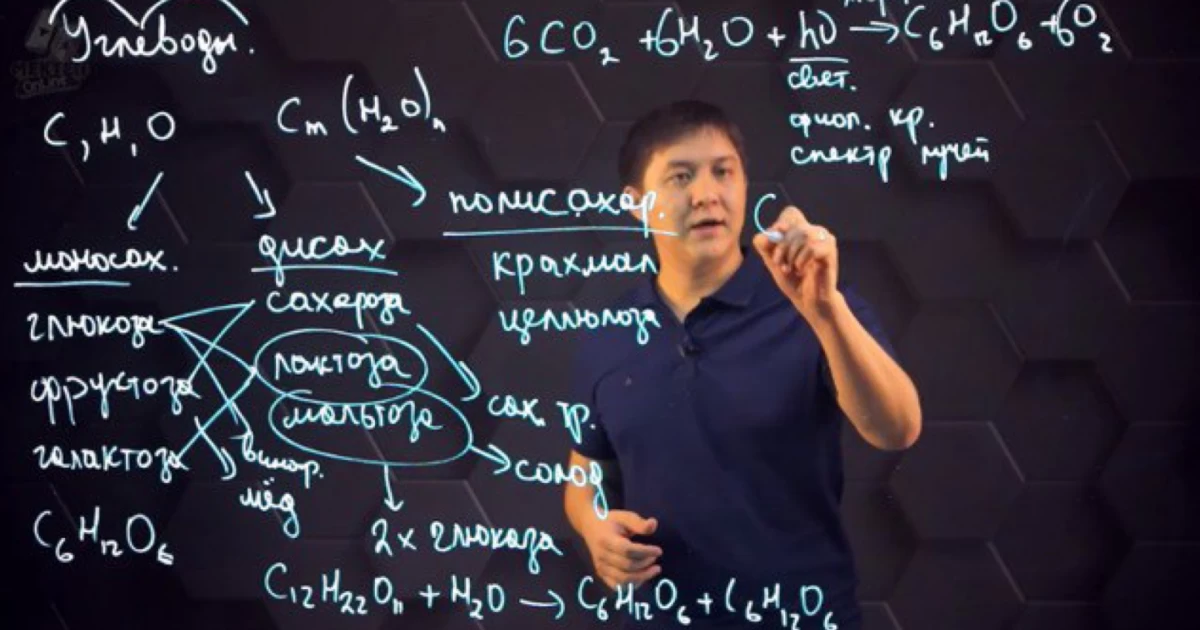 Углеводы.
6CO₂ + 6H₂O + hν → C₆H₁₂O₆ + 6O₂
свет.
фиол. кр.
спектр лучей
C, H, O
Cₘ(H₂O)ₙ
полисахар.
крахмал
целлюлоза
моносах.
глюкоза
фруктоза
галактоза
C₆H₁₂O₆
дисах
сахароза
лактоза
мальтоза
виногр.
мёд
сах. тр.
солод
2x глюкоза
C₁₂H₂₂O₁₁ + H₂O → C₆H₁₂O₆ + C₆H₁₂O₆
C
online